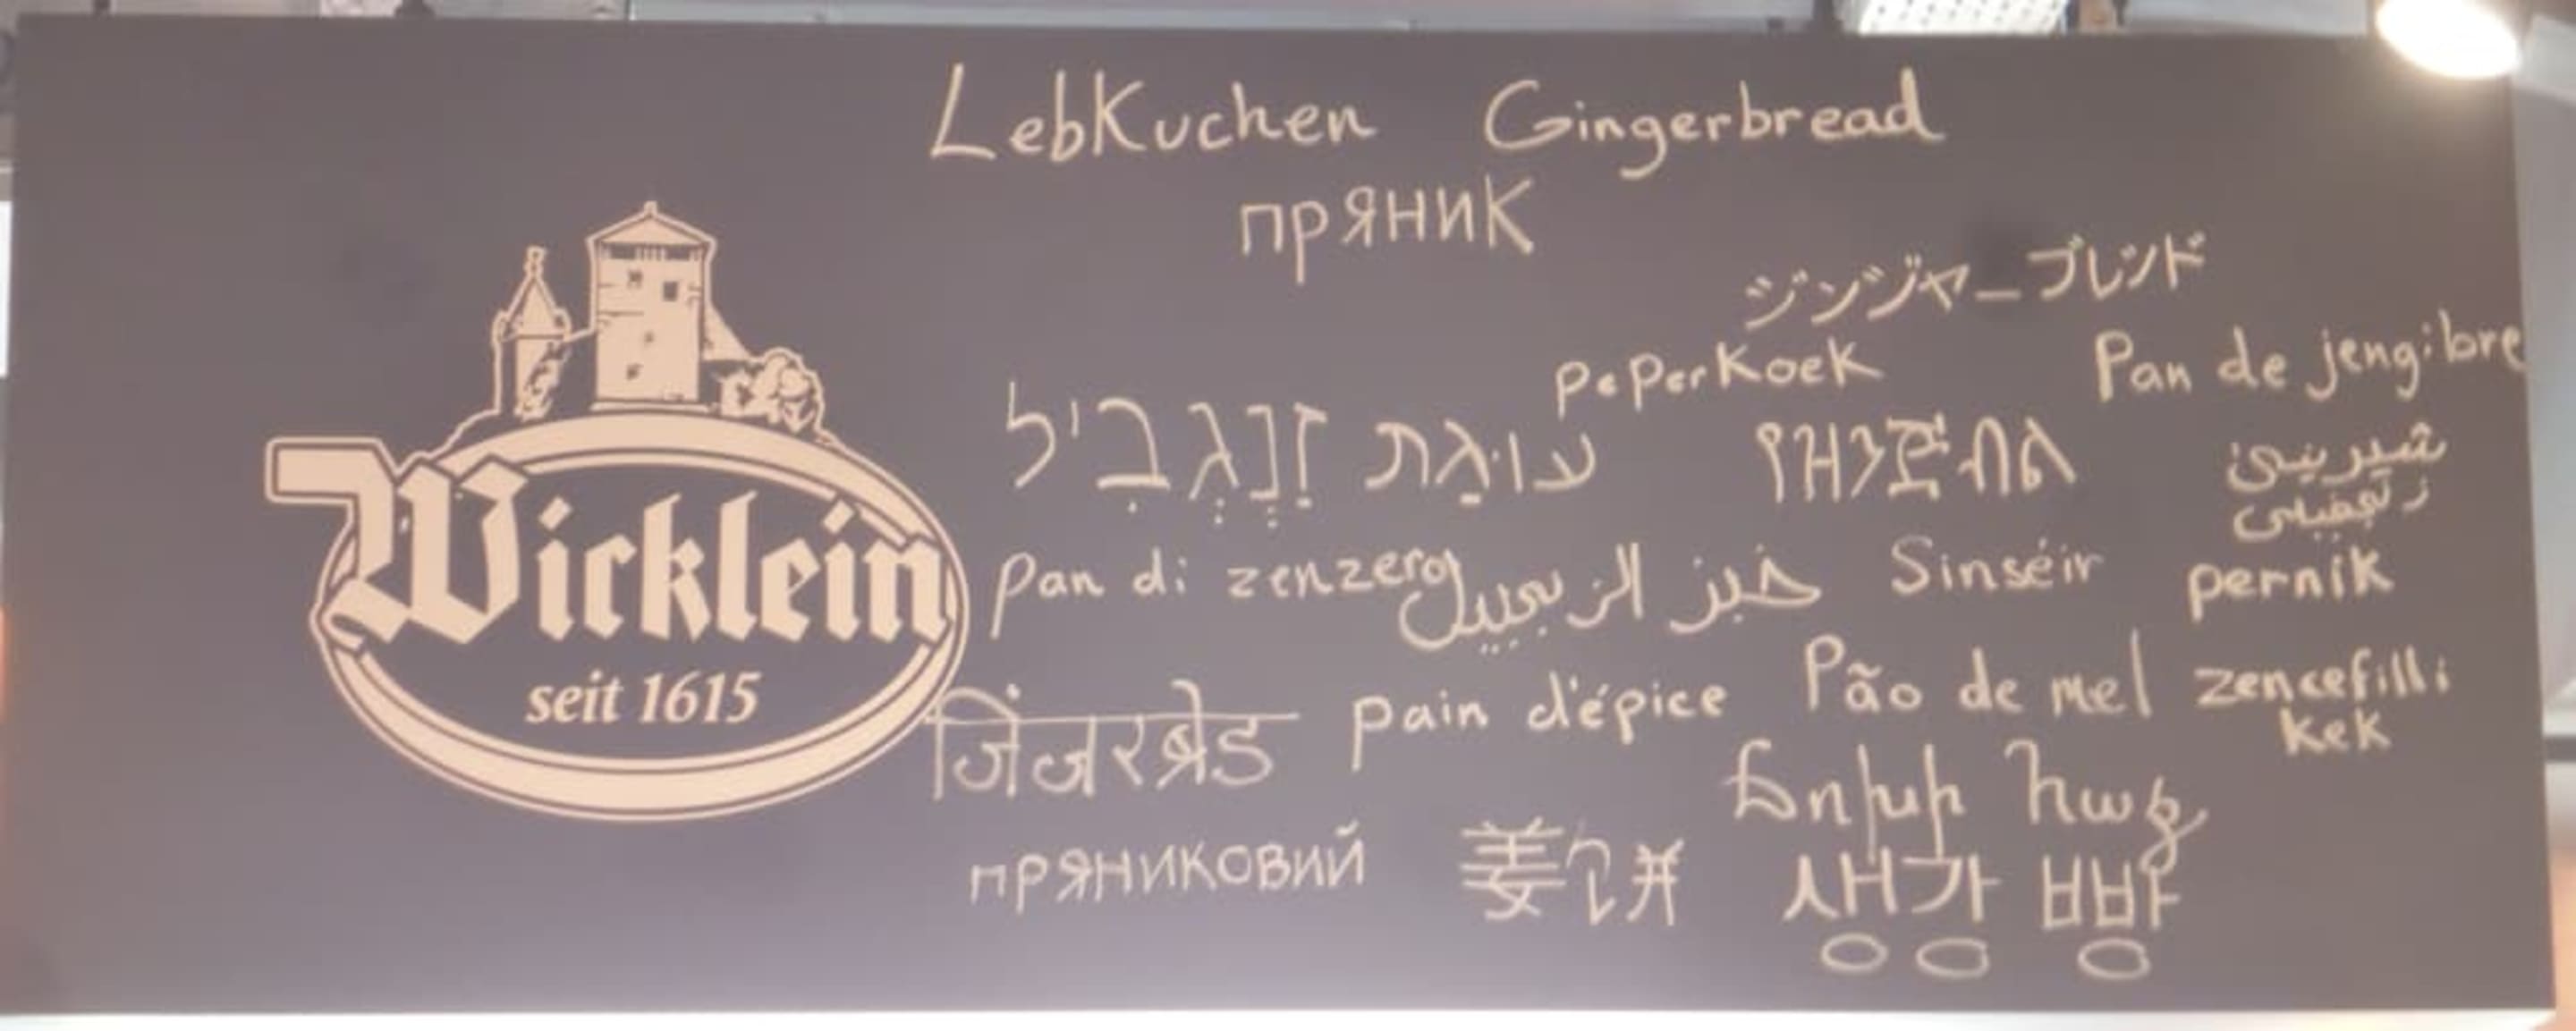 LebKuchen Gingerbread
пряник
ジンジャーブレンド
peperkoek Pan de jengibre
עוּגַת זַנְגְבִיל የዝንጅብል شیرینی
زنجبیلی
pan di zenzero خبز الزنجبيل Sinséir perník
Wicklein
seit 1615
जिंजरब्रेड pain d'épice Pão de mel zencefilli
kek
ճոխի հաց
пряниковий 姜饼 생강 빵